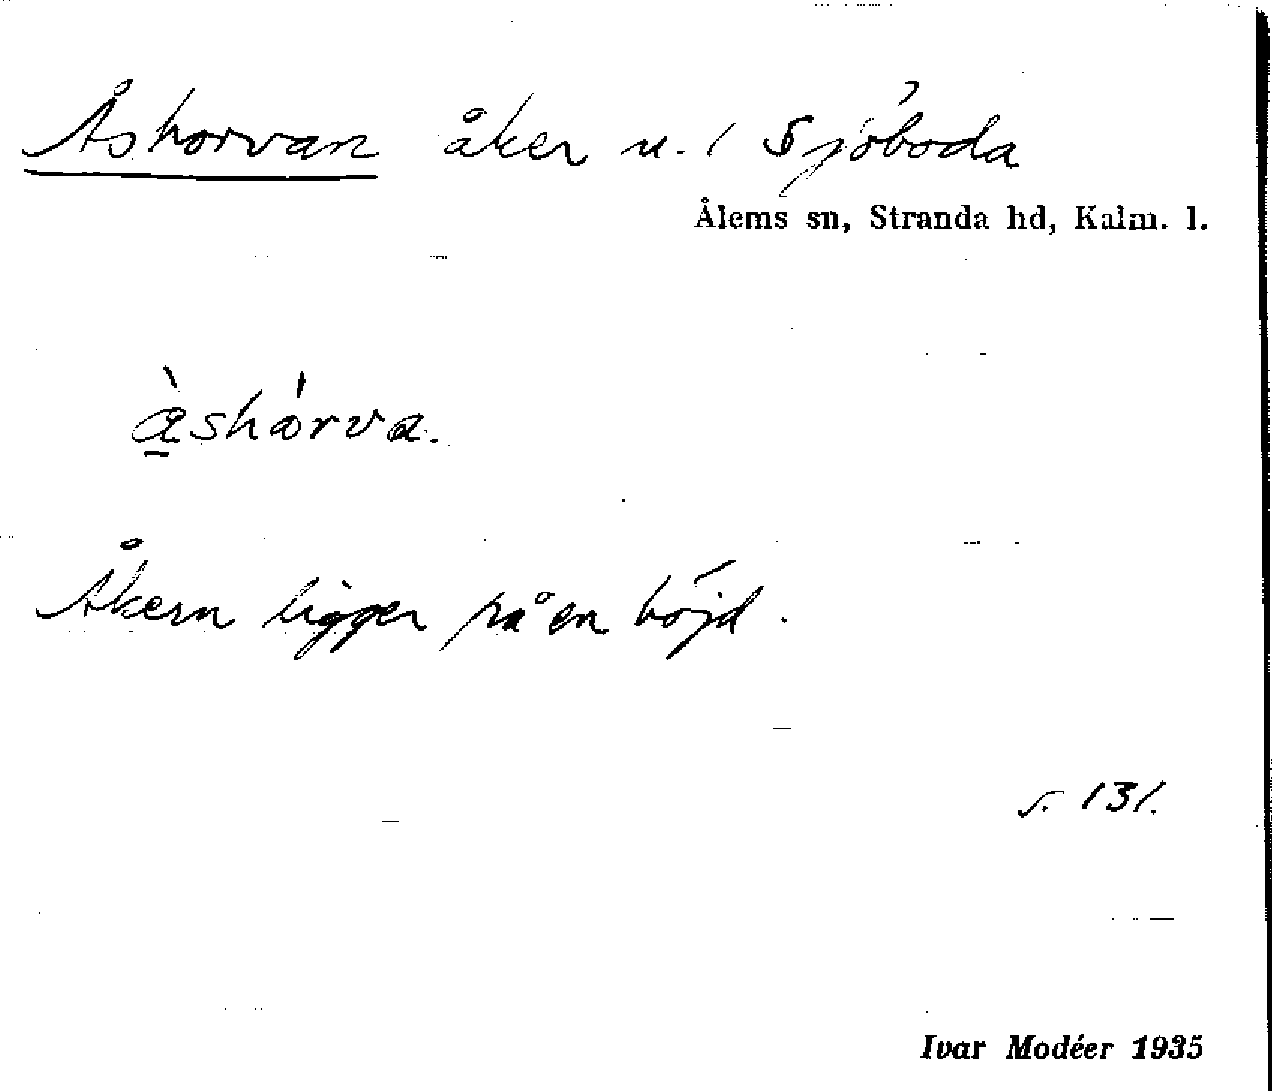 Åshorvan åker u. 1 Sjöboda
Ålems sn, Stranda hd, Kalm. l.
àshårva.
Åkern ligger på en höjd.
s. 131.
Ivar Modéer 1935